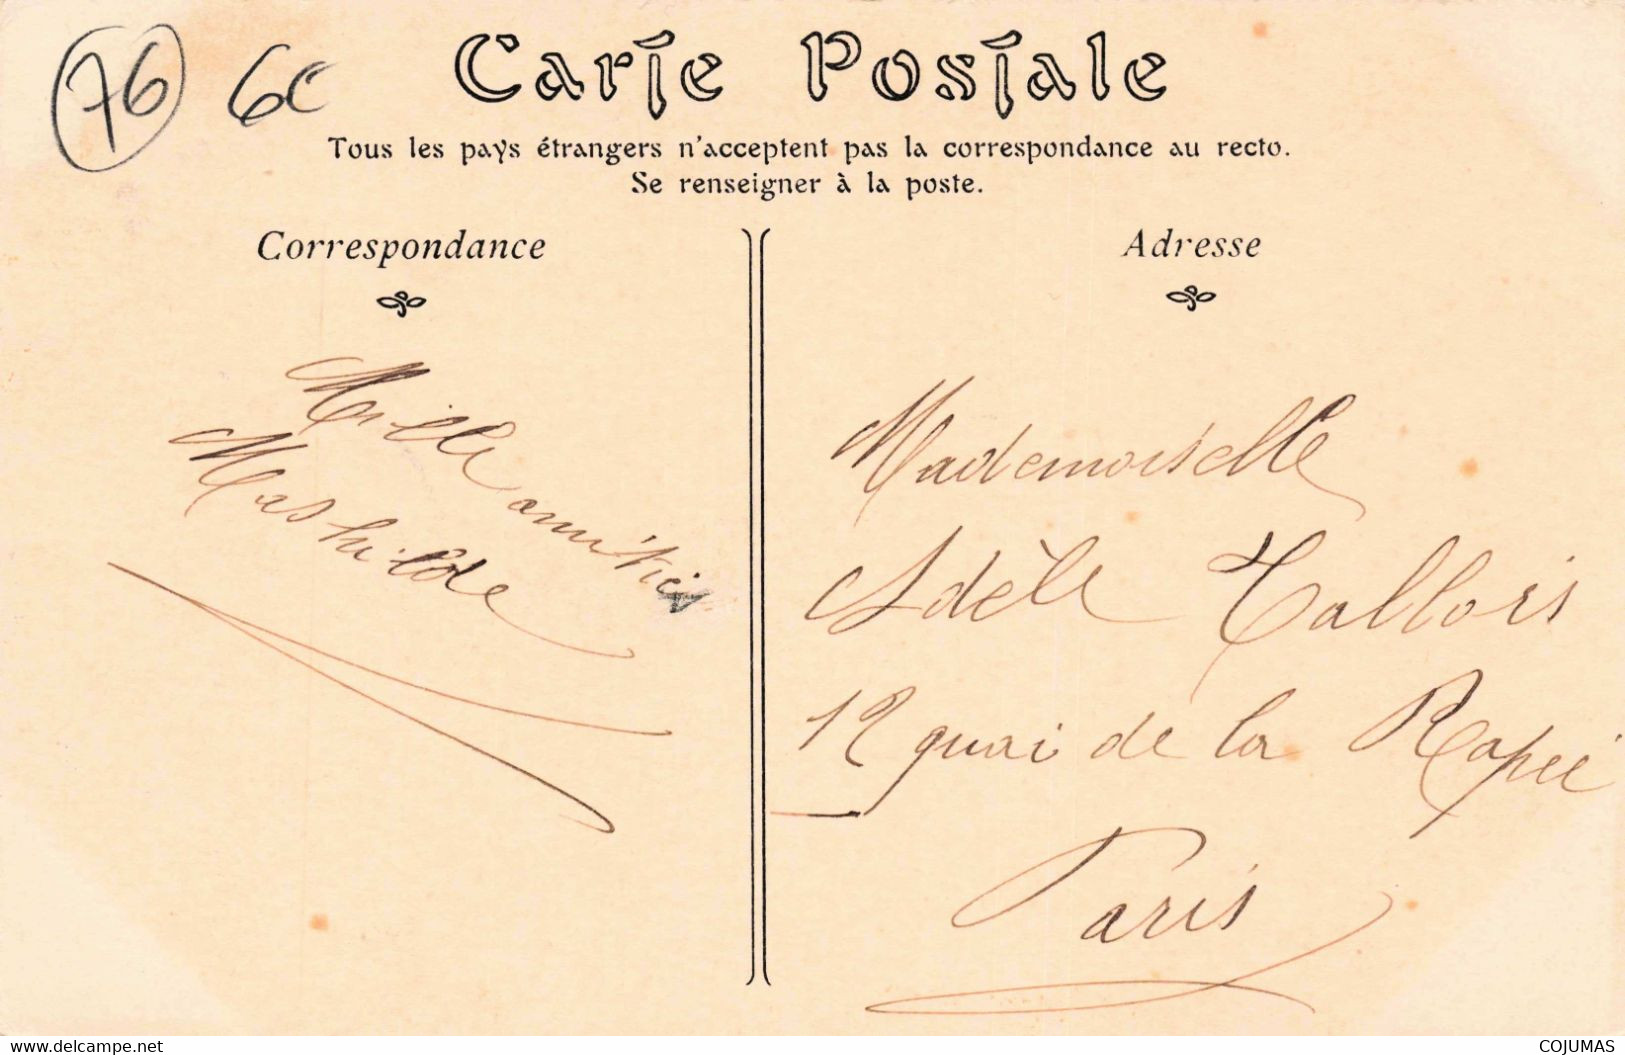 76 6c
Carte Postale
Tous les pays étrangers n'acceptent pas la correspondance au recto.
Se renseigner à la poste.
Correspondance
Mille amitiés
Mathilde
Adresse
Mademoiselle
Adèle Tallois
12 quai de la Rapée
Paris
www.delcampe.net
COJUMAS